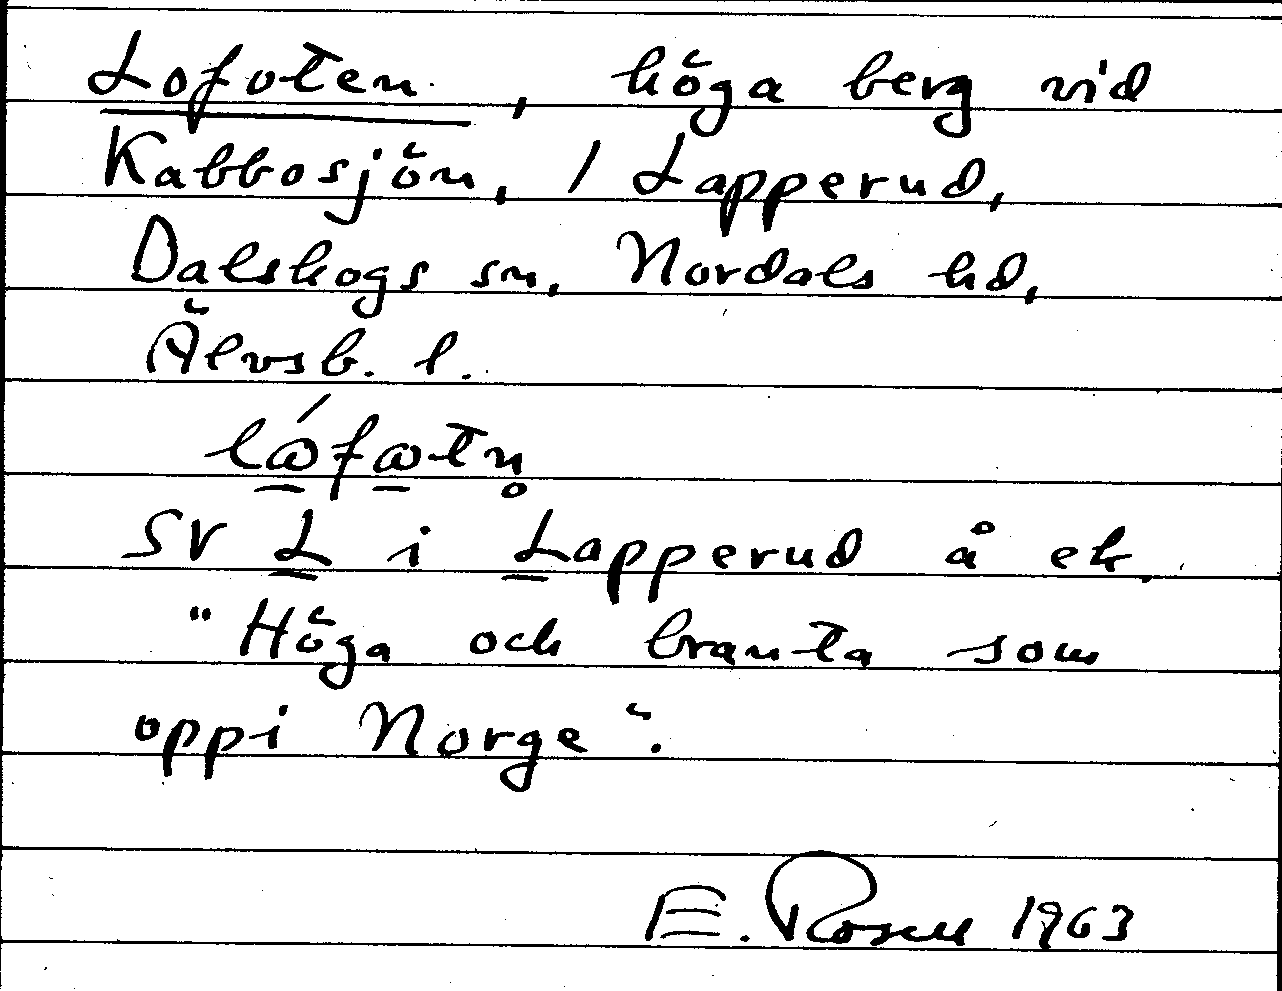 Lofoten, höga berg vid
Kabbosjön, / Lapperud,
Dalskogs sn, Nordals hd,
Älvsb. l.
SV L i Lapperud å ek.
"Höga och branta som
oppi Norge".
E. Rosell 1963